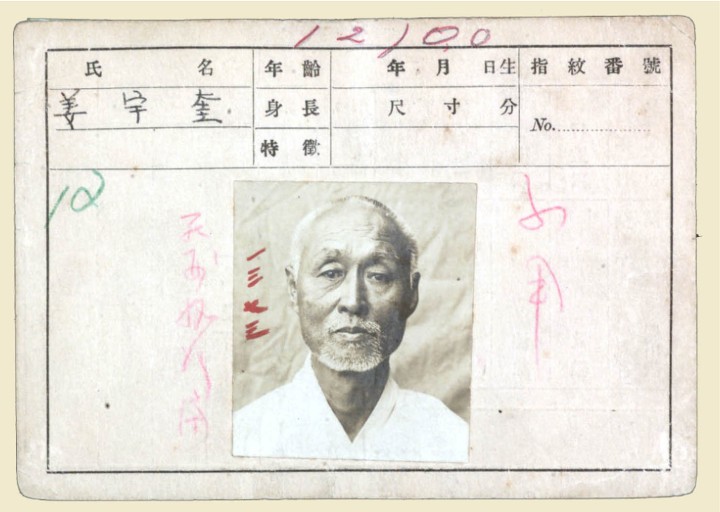 12100
氏名 年齡 年月日生 指紋番號
姜宇奎 身長 尺寸分 No.
特徵
12
不用
一三七三